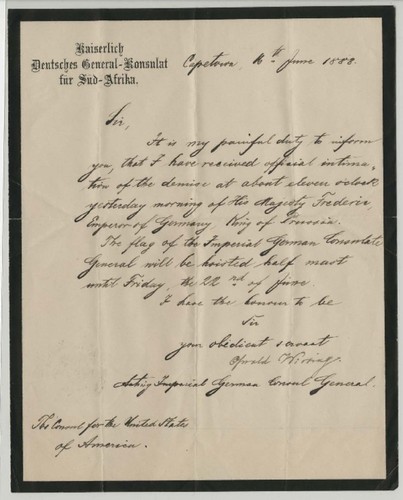 Kaiserlich
Deutsches General-Konsulat
für Süd-Afrika.
Capetown, 16th June 1888.
Sir,
It is my painful duty to inform
you, that I have received official intima-
tion of the demise at about eleven o'clock
yesterday morning of His Majesty Frederic,
Emperor of Germany King of Prussia.
The flag of the Imperial German Consulate
General will be hoisted half mast
until Friday, the 22nd of June.
I have the honour to be
Sir
your obedient servant
Oswald
Acting Imperial German Consul General.
The Consul for the United States
of America.